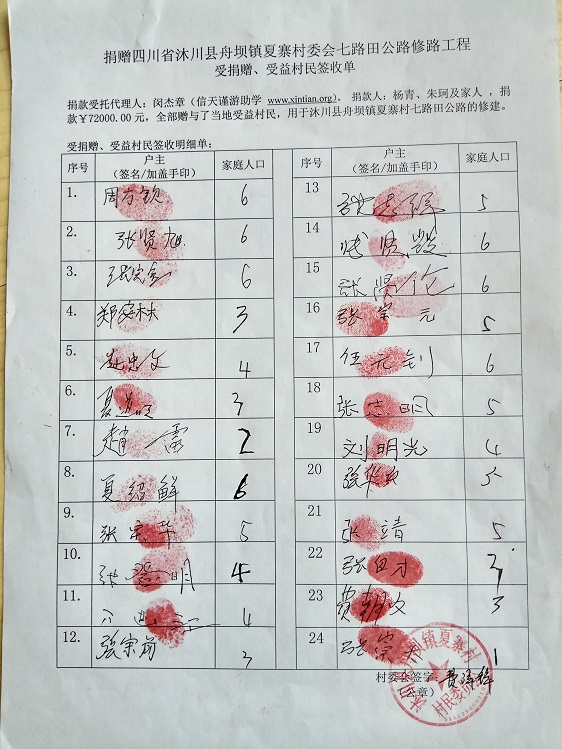 捐赠四川省沐川县舟坝镇夏寨村委会七路田公路修路工程
受捐赠、受益村民签收单
捐款受托代理人：闵杰章（信天谨游助学 www.xintian.org）。 捐款人：杨青、朱珂及家人，捐
款￥72000.00元，全部赠与了当地受益村民，用于沐川县舟坝镇夏寨村七路田公路的修建。
受捐赠、受益村民签收明细单：
序号 户主（签名/加盖手印） 家庭人口
1. 周方钦 6
2. 张贤旭 6
3. 6
4. 郑家林 3
5. 赵忠文 4
6. 3
7. 赵一霜 2
8. 夏绍鲜 6
9. 张宗华 5
10. 4
11. 4
12. 张宗前 3
序号 户主（签名/加盖手印） 家庭人口
13 5
14 6
15 张贤伦 6
16 张宗元 5
17 伍元钊 6
18 张志明 5
19 刘明光 4
20 5
21 张靖 5
22 张白才
23 费朝文 3
24 张宗 1
村委会签字：
（公章）
镇夏寨村
村民委